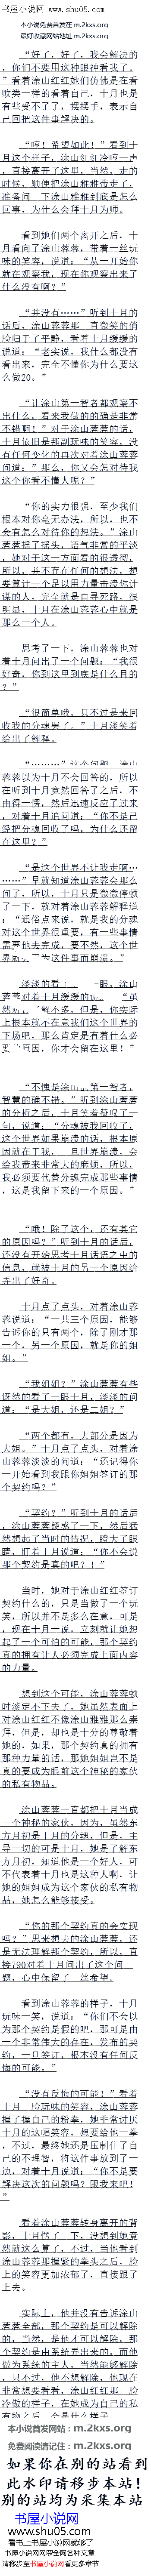 书屋小说网 - www.shu05.com
本小说免费首发在 m.2kxs.org
最好收藏网站地址 m.2kxs.org
“好了，好了，我会解决的，你们不要用这种眼神看我了。”看着涂山红红她们仿佛是在看败类一样的看着自己，十月也是有些受不了了，摆摆手，表示自己回把这件事解决的。
“哼！希望如此！”看到十月这个样子，涂山红红冷哼一声，直接离开了这里，当然，走的时候，顺便把涂山雅雅带走了，准备问一下涂山雅雅到底是怎么回事，为什么会拜十月为师。
看到她们两个离开之后，十月看向了涂山蓉蓉，带着一丝玩味的笑容，说道：“从一开始你就在观察我，现在你观察出来了什么没有啊？”
“并没有……”听到十月的话后，涂山蓉蓉那一直微笑的俏脸归于了平静，看着十月缓缓的说道：“老实说，我什么都没有看出来，完全不懂你为什么要这么做20。”
“让涂山第一智者都观察不出什么，看来我做的的确是非常不错啊！”对于涂山蓉蓉的话，十月依旧是那副玩味的笑容，没有任何变化的再次对着涂山蓉蓉问道；”那么，你又会怎对待我这个你看不懂人呢？”
“你的实力很强，至少我们根本对你毫无办法，所以，也不会有怎么对待你的想法。”涂山蓉蓉摇了摇头，语气非常的平淡，她对于这一方面看的很透彻，所以，并不存在任何的想法，想要算计一个足以用力量击溃你计谋的人，完全就是自寻死路，很明显，十月在涂山蓉蓉心中就是那么一个人。
思考了一下，涂山蓉蓉也对着十月问出了一个问题；“我很好奇，你到这里到底是什么目的？”
“很简单哦，只不过是来回收我的分魂罢了。”十月淡笑着给出了解释。
蓉蓉以为十月不会回答的，所以在听到十月竟然回答了之后，不由得一愣，然后迅速反应了过来，对着十月追问道；“你不是已经把分魂回收了吗，为什么还留在这里？”
“是这个世界不让我走啊……”早就知道涂山蓉蓉会那么问了，所以，十月只是微微停顿了一下，就对着涂山蓉蓉解释道；“通俗点来说，就是我的分魂对这个世界很重要，有一些事情需要他去完成，要不然，这个世
“不愧是涂山第一智者，智慧的确不错。”听到涂山蓉蓉的分析之后，十月笑着赞叹了一句，说道；“分魂被我回收了，这个世界如果崩溃的话，根本原因就在于我，一旦世界崩溃，会给我带来非常大的麻烦，所以，我必须要代替分魂完成那些事情，这是我留下来的一个原因。”
“哦！除了这个，还有其它的原因吗？”听到十月的话后，还没有开始思考十月话语之中的信息，就被十月的另一个原因给弄出了好奇。
十月点了点头，对着涂山蓉蓉说道；“一共三个原因，能够告诉你的只有两个，除了刚才那一个，另一个原因，就是你的姐姐。”
“我姐姐？”涂山蓉蓉有些讶然的看了一眼十月，淡淡的问道；“是大姐，还是二姐？”
“两个都有，大部分是因为大姐。”十月点了点头，对着涂山蓉蓉淡淡的问道；“还记得你一开始看到我跟你姐姐签订的那个契约吗？”
“契约？”听到十月的话后，涂山蓉蓉疑惑了一下，然后猛然想起了当时的情况，瞪大了眼睛，盯着十月说道；“你不会说那个契约是真的吧？！”
当时，她对于涂山红红签订契约什么的，只是当做了一个玩笑，所以并不是多么在意，可是，现在十月一说，立刻就让她想起了一个可怕的可能，那个契约真的拥有让人必须完成上面内容的力量。
想到这个可能，涂山蓉蓉顿时淡定不下去了，她虽然表面上对涂山红红不像涂山雅雅那么崇拜，但是，却也是十分的尊敬着她的，如果，那个契约真的拥有那种力量的话，那她姐姐岂不是真的要成为眼前这个神秘的家伙的私有物品。
涂山蓉蓉一直都把十月当成一个神秘的家伙，因为，虽然东方月初是十月的分魂，但是，主导一切的可是十月，她是了解东方月初，知道他是一个好人，可不代表着十月也是这种人啊，让她的姐姐成为这个家伙的私有物品，她怎么能够接受。
“你的那个契约真的会实现吗？”思来想去的涂山蓉蓉，还是无法理解那个契约，所以，直接790对着十月问出了这个问题，心中保留了一丝希望。
看到涂山蓉蓉的样子，十月玩味一笑，说道；“你们不会以为那个契约是假的吧，那可是由一个非常伟大的存在，发布的契约，一旦签订，根本没有任何反悔的可能。”
“没有反悔的可能！”看着十月一脸玩味的笑容，涂山蓉蓉握了握自己的粉拳，她非常讨厌十月的这幅笑容，想要给他一拳，不过，最终她还是压制住了自己的不理智，将这件事放到了一边，对着十月说道；“你不是要解决这次的问题吗？跟我来吧！”
看着涂山蓉蓉转身离开的背影，十月愣了一下，没想到她竟然就这么算了，不过，当他看到涂山蓉蓉那握紧的拳头之后，脸上的笑容更加浓郁了，直接跟了上去。
实际上，他并没有告诉涂山蓉蓉全部，那个契约是可以解除的，当然，是他才可以解除，那个契约是由系统弄出来的，而他做为系统的主人，当然能够解除，只不过，他不想解除，他现在非常想要看看，涂山红红那一脸冷傲的样子，在她成为自己的私
本小说首发网站：m.2kxs.org
免费阅读请记住：m.2kxs.org
如果你在别的站看到
此水印请移步本站！
别的站均为采集本站
书屋小说网
www.shu05.com
看书上书屋小说网就够了
书屋小说网网罗全网各种文章
请移步至书屋小说网看更多章节